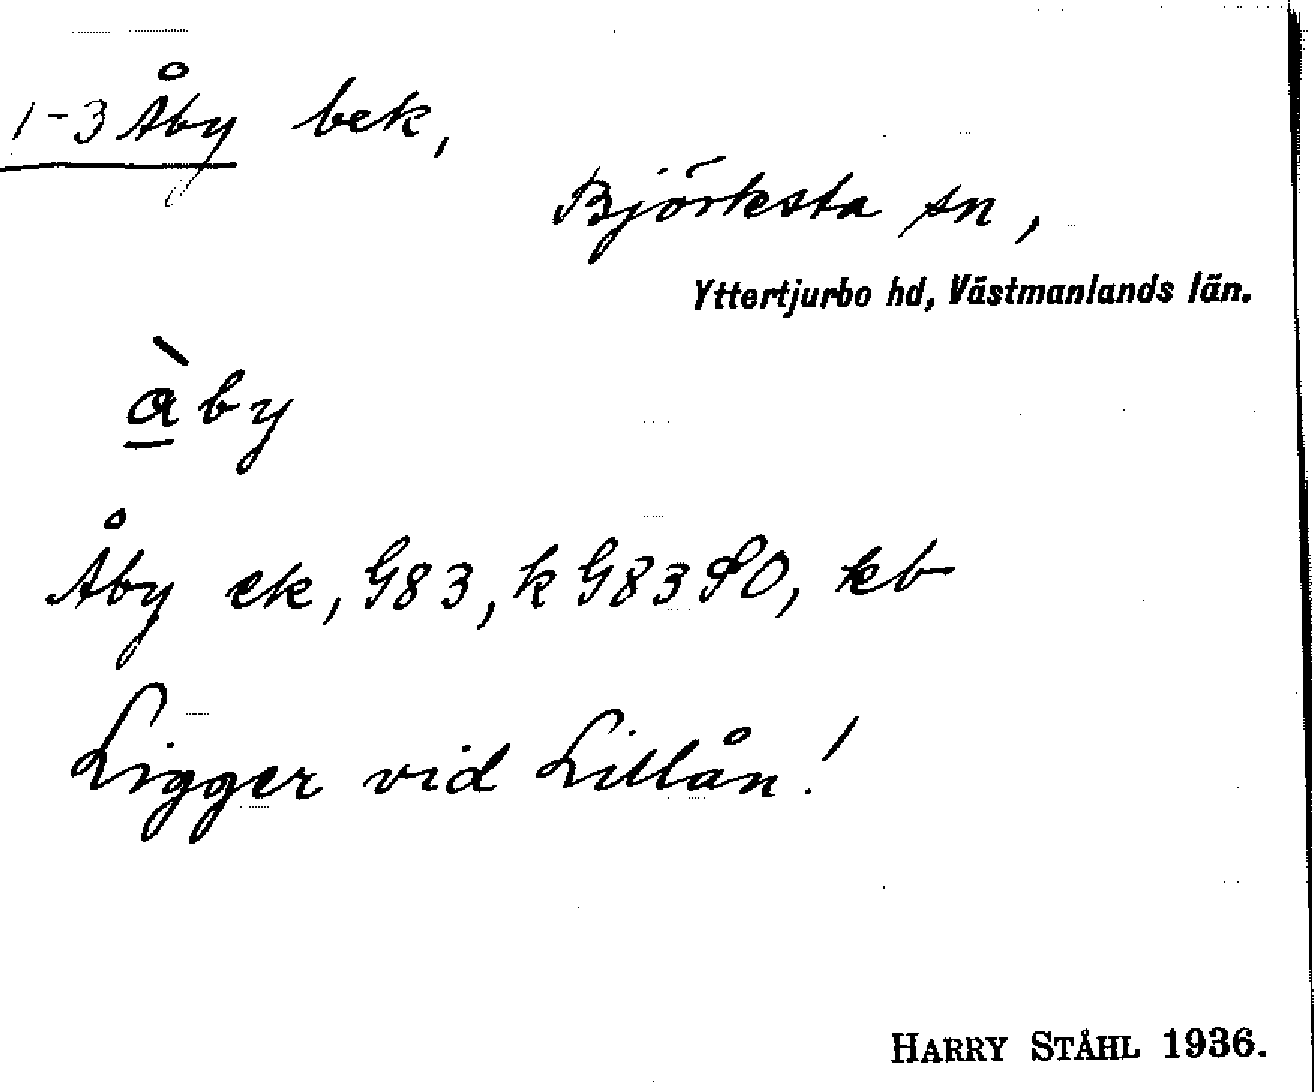 1-3 Åby bek,
Björksta sn,
Yttertjurbo hd, Västmanlands län.
àby
Åby ek, G83, k G83 SO, kb
Ligger vid Lillån!
HARRY STÅHL 1936.